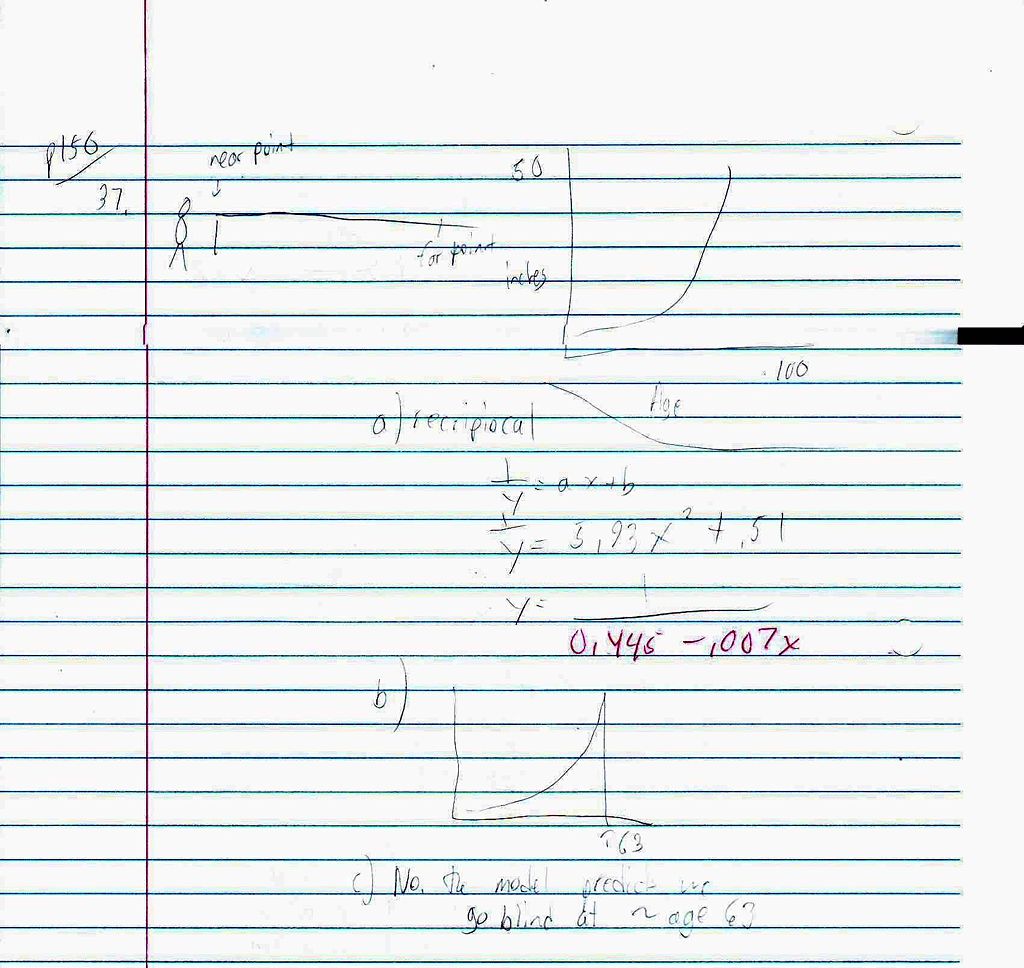 p156
37.
near point
far point
50
inches
100
Age
a) recripiocal
1/y = ax+b
1/y = 5.93x² + .51
y = 1/(0.445 - .007x)
b)
63
c) No. the model predict we
go blind at ~ age 63